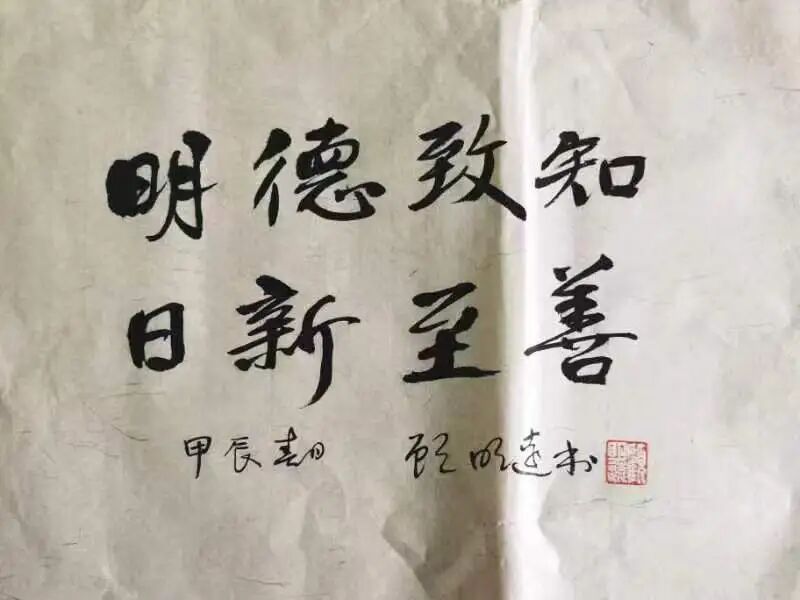 明德致知
日新至善
甲辰春日 顾明远书